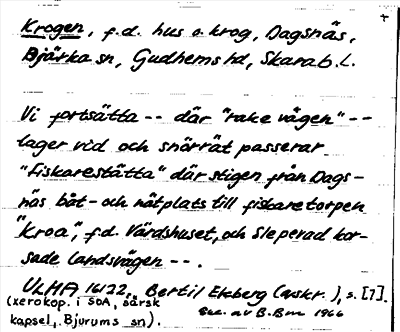 Krogen, f.d. hus o. krog, Dagsnäs,
Bjärka sn, Gudhems hd, Skarab. L.
Vi fortsätta -- där "rake vägen" --
lager vid och snörrät passerar
"Fiskarestätta" där stigen från Dags-
näs båt- och nätplats till fiskaretorpen
"Kroa", f.d. Värdshuset, och Sleperad kor-
sade landsvägen --.
ULMA 16122, Bertil Ekberg (avskr.), s. [7].
(xerokop. i SOA, särsk
kapsel, Bjurums sn).
Exc. av B. Bm 1966